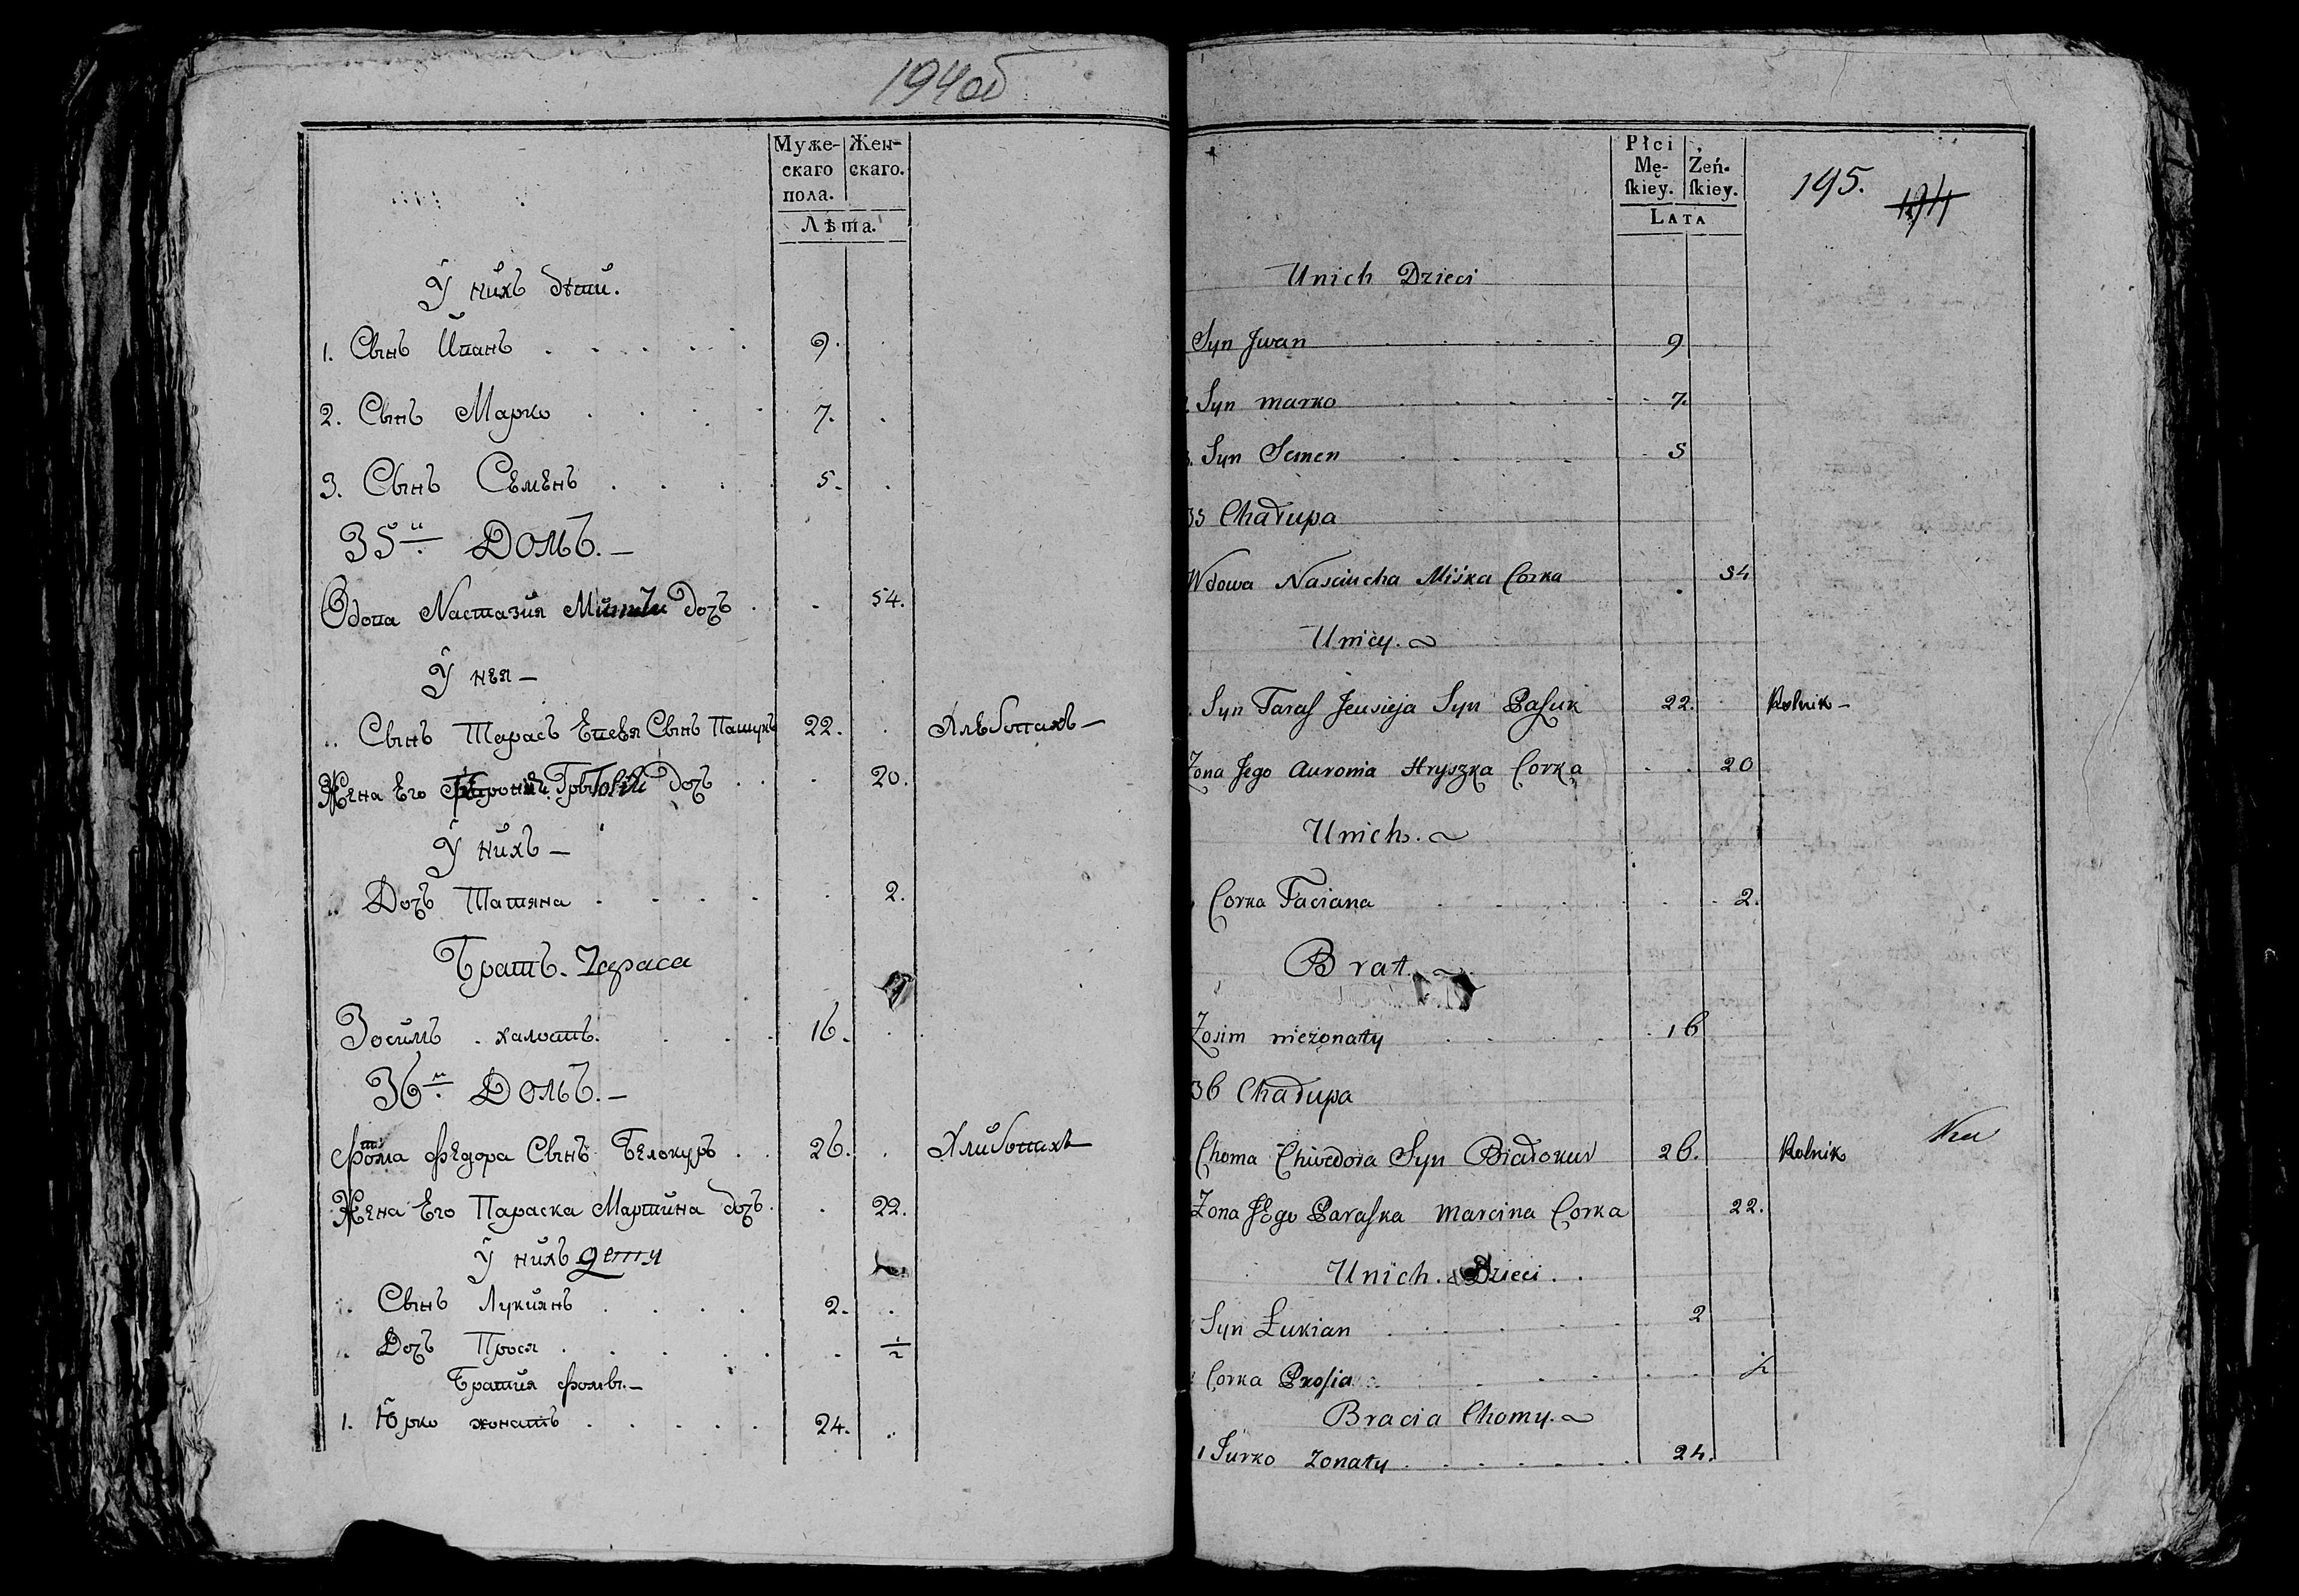 194об
Муже- Жен-
скаго скаго.
пола.
Лѣта.
Ў нихъ дѣти.
1. Сынъ Иванъ . . . . . 9.
2. Сынъ Марко . . . . 7.
3. Сынъ Семенъ . . . . 5.
35й Домъ.—
Вдова Настазия дочъ . . 54.
Ў нея—
Сынъ Тарасъ Евсея Сынъ Пашукъ 22.
Жена Его дочъ . . 20.
Ў нихъ—
Дочъ Татяна . . . . 2.
Братъ. Тараса
Зосимъ . халостъ. . . . 16.
36й Домъ.—
Фома Федора Сынъ Белокуръ . . 26.
Жена Его Параска Мартина дочъ. . 22.
Ў нихъ дети
Сынъ Лукиянъ . . . . 2.
Дочъ Прося . . . . . ½
Братия Фомы.—
1. Юрко жонатъ . . . . . 24.
Płci
Mę- Żeń-
ſkiey. ſkiey.
LATA
195. 194
Unich Dzieci
Syn Jwan 9
Syn marko 7.
3. Syn Semen 5
35 Chałupa
Wdowa Nasciucha Miśka Corka 54
Unicy.
Syn Taraſ Jeusieja Syn Paſuk 22. Rolnik—
Zona Jego Auronia Hryszka Corka 20
Unich.
Corka Taciana 2.
Brat
Zosim nieżonaty 16
36 Chałupa
Choma Chwedora Syn Białokur 26. Rolnik
Zona Jego Paraſka Marcina Corka 22.
Unich. Dzieci.
Syn Łukian 2
Corka Proſia ½
Bracia Chomy.
1 Jurko Zonaty 24.